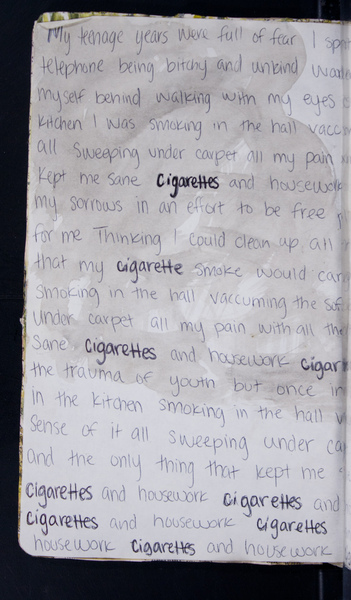 My teenage years were full of fear I spent
telephone being bitchy and unkind
myself behind walking with my eyes
kitchen I was smoking in the hall vacc
all sweeping under carpet all my pain
kept me sane cigarettes and housework
my sorrows in an effort to be free
for me Thinking I could clean up all
that my cigarette smoke would carr
smoking in the hall vaccuming the sof
under carpet all my pain with all the
sane cigarettes and housework cigar
the trauma of youth but once in
in the kitchen smoking in the hall v
sense of it all sweeping under ca
and the only thing that kept me
cigarettes and housework cigarettes and
cigarettes and housework cigarettes
housework cigarettes and housework